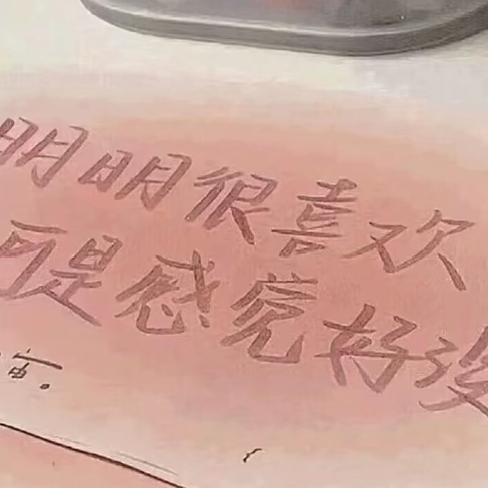 明明很喜欢
可是感觉好没